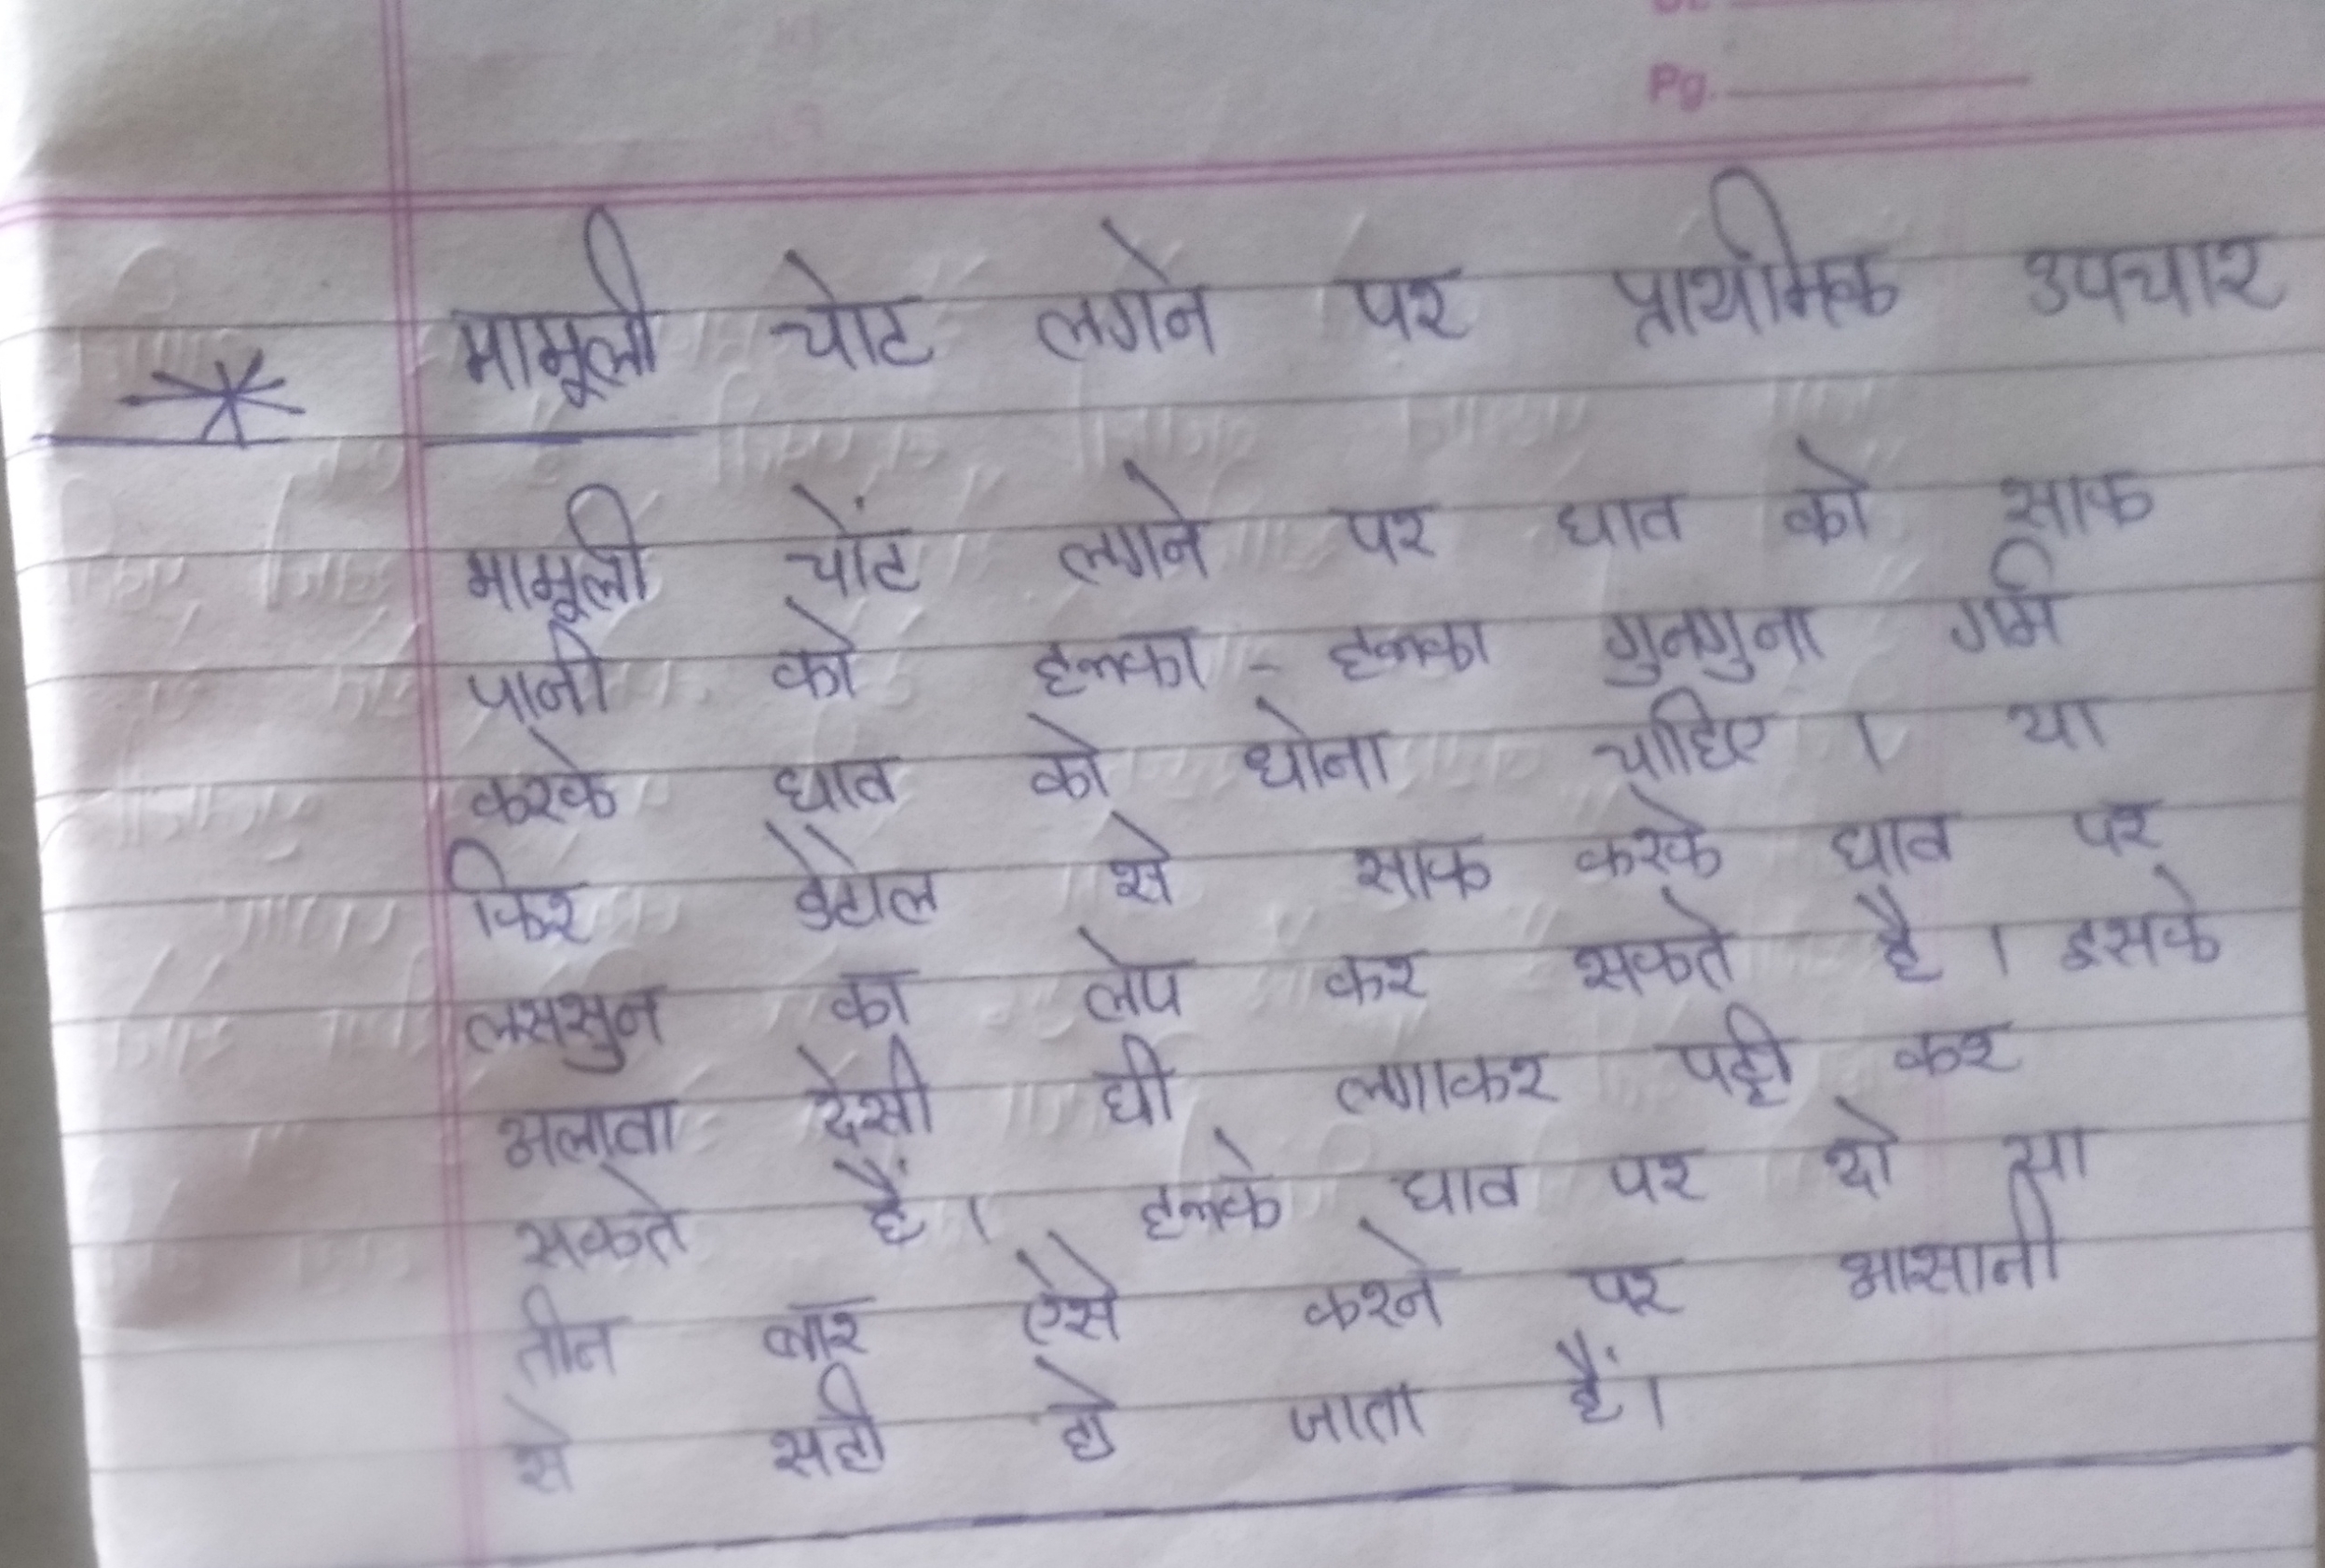 Pg.
मामूली चोट लगने पर प्राथमिक उपचार
मामूली चोंट लगने पर घाव को साफ
पानी को हल्का - हल्का गुनगुना गर्म
करके घाव को धोना चाहिए । या
फिर डेटोल से साफ करके घाव पर
लससुन का लेप कर सकते है । इसके
अलावा देसी घी लगाकर पट्टी कर
सकते हैं । हल्के घाव पर दो सा
तीन बार ऐसे करने पर आसानी
से सही हो जाता हैं ।